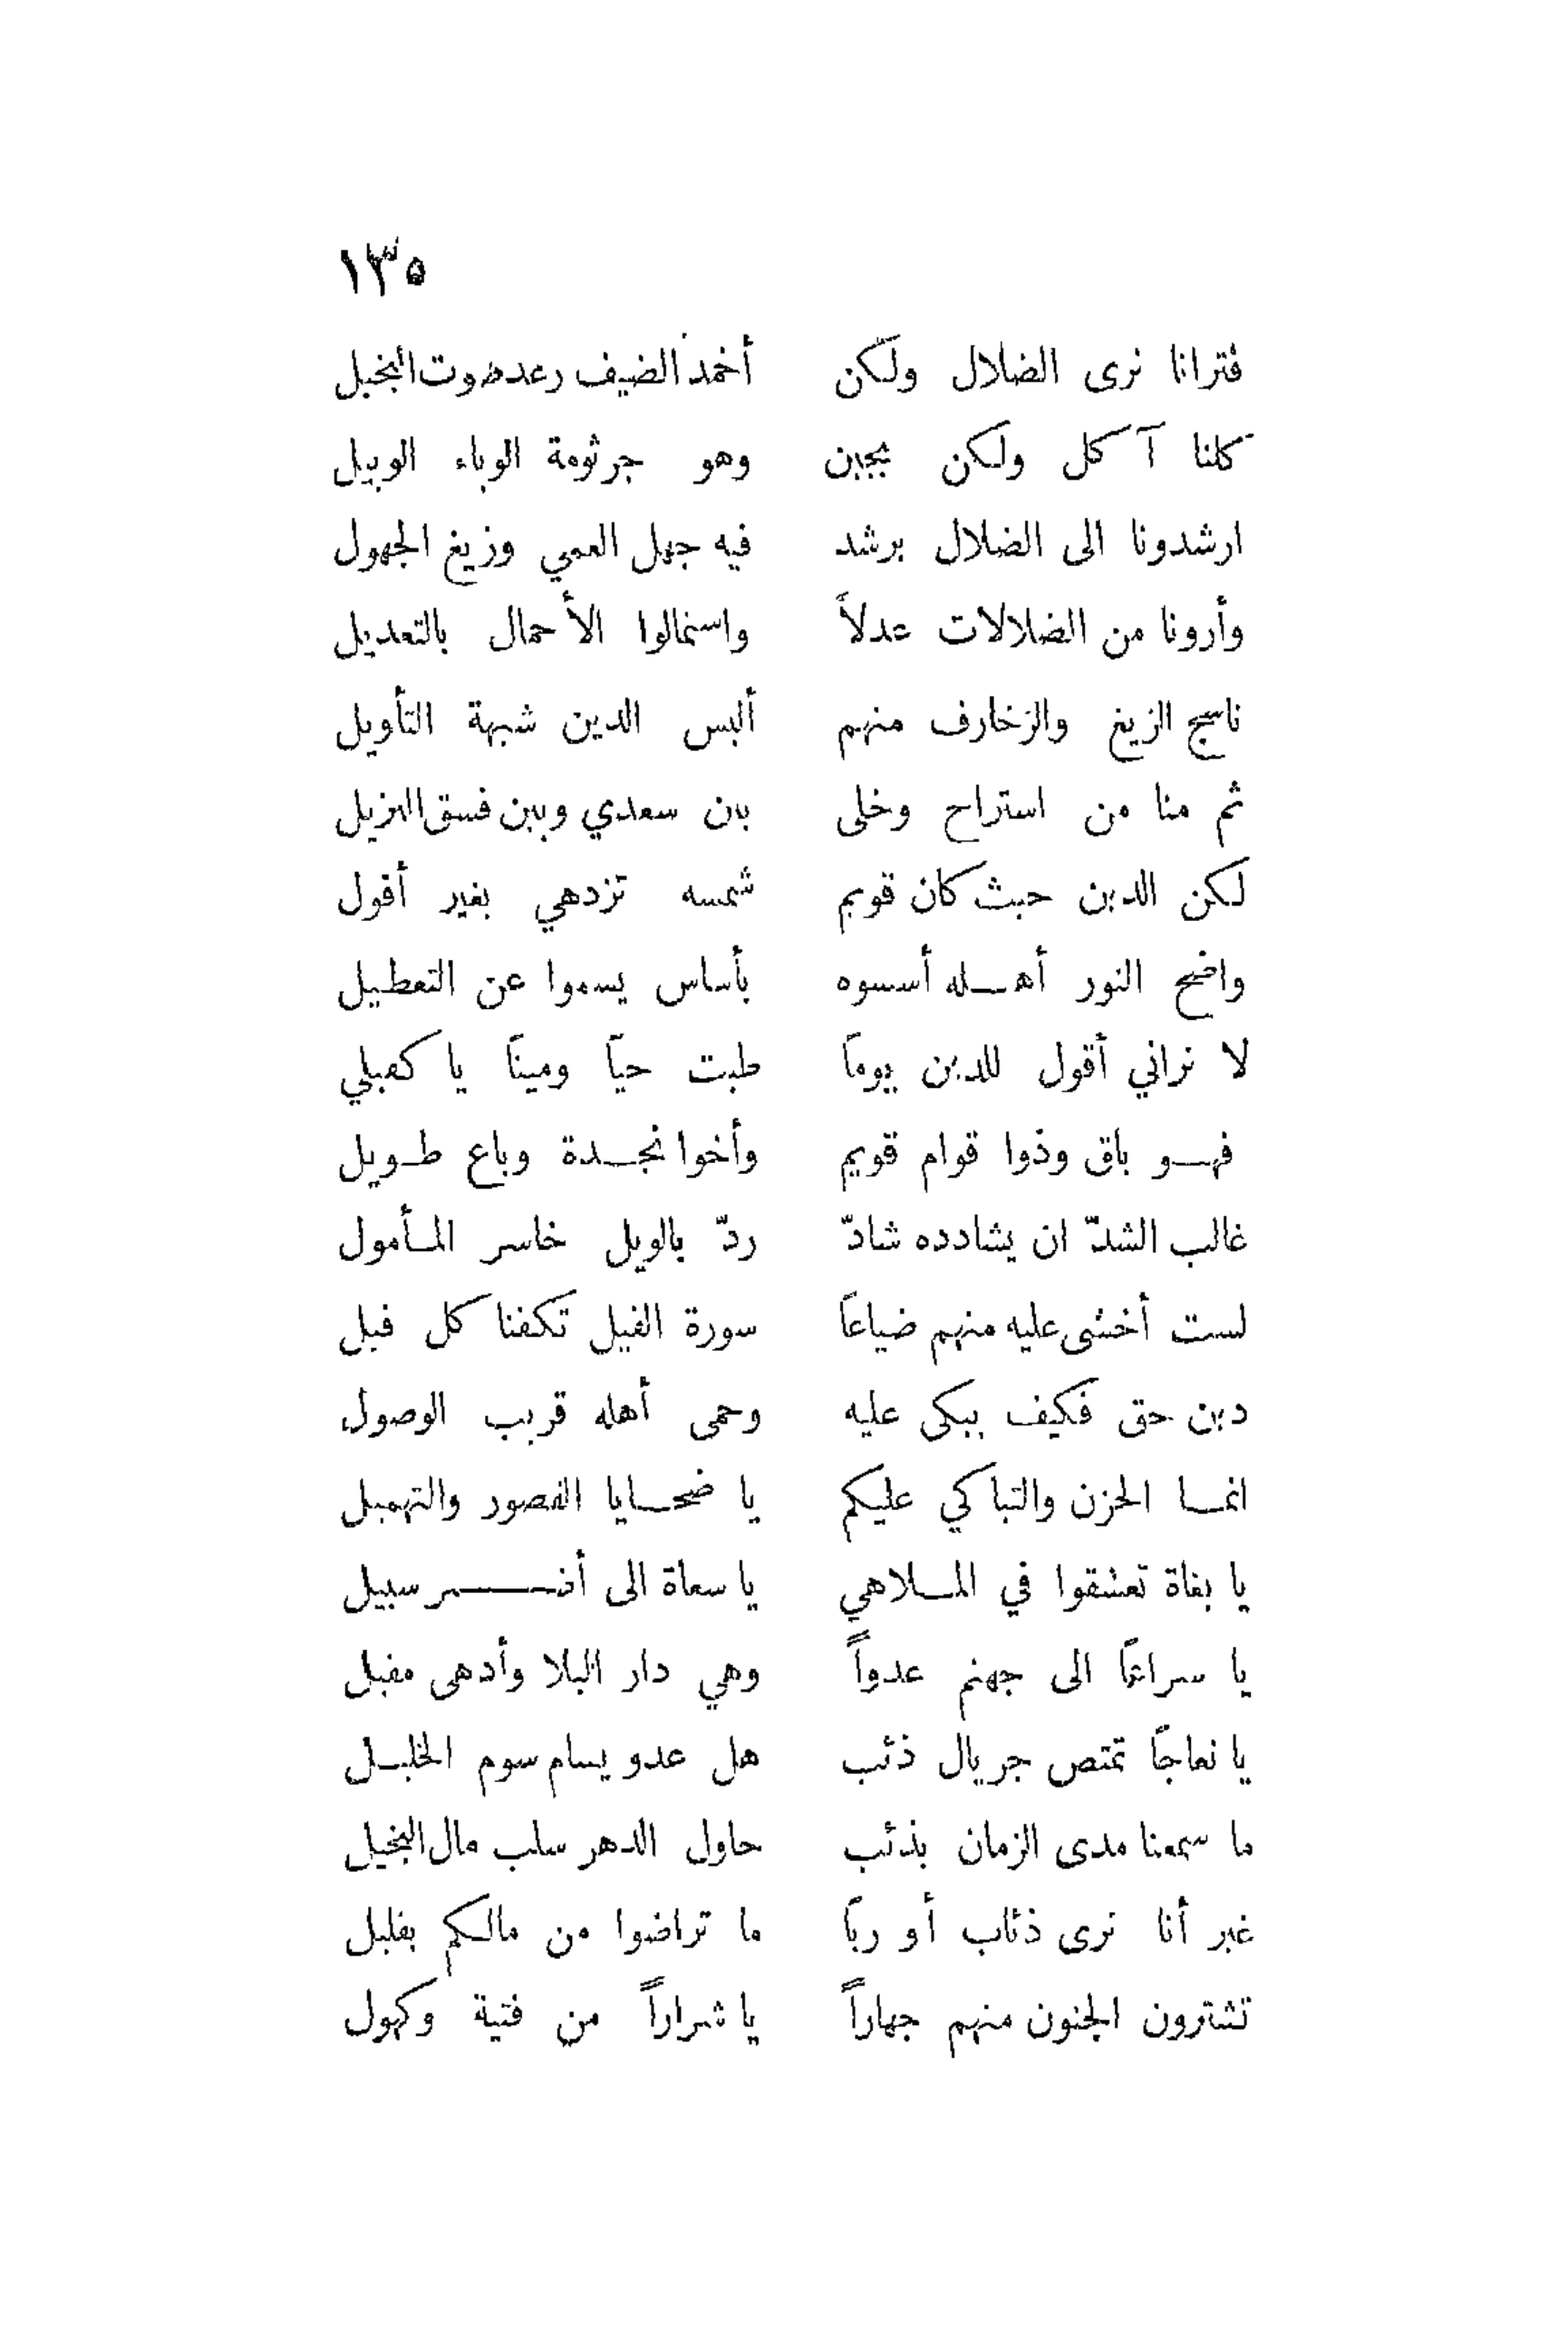 ١٣٥
فترانا نرى الضلال ولكن أخمد الضيف رعده صوت البخيل
كلنا آكل ولكن بجبن وهو جرثومة الوباء الوبيل
ارشدونا الى الضلال برشد فيه جهل العمي وزيغ الجهول
وأرونا من الضلالات عدلاً واستمالوا الأحمال بالتعديل
ناسج الزيغ والزخارف منهم ألبس الدين شبهة التأويل
ثم منا من استراح وخلى بين سعدي وبين فسق الهزيل
لكن الدين حيث كان قويم شمسه تزدهي بغير أفول
واضح النور أهله أسسوه بأساس يسموا عن التعطيل
لا تراني أقول للدين يوماً طبت حياً وميتاً يا كفيلي
فهو باق وذوا قوام قويم وأخوا نجدة وباع طويل
غالب الشدّ ان يشادده شادّ ردّ بالويل خاسر المأمول
لست أخشى عليه منهم ضياعاً سورة الفيل تكفنا كل فيل
دين حق فكيف يبكى عليه وحمى أهله قريب الوصول
انما الحزن والتباكي عليكم يا ضحايا القصور والتهميل
يا بغاة تعشقوا في الملاهي يا سعاة الى أضر سبيل
يا سراعاً الى جهنم عدواً وهي دار البلا وأدهى مقيل
يا نعاجاً تمتص جريال ذئب هل عدو يسام سوم الخليل
ما سمعنا مدى الزمان بذئب حاول الدهر سلب مال البخيل
غير أنا نرى ذئاب أوربا ما تراضوا من مالكم بقليل
تشترون الجنون منهم جهاراً يا شراراً من فتية وكهول